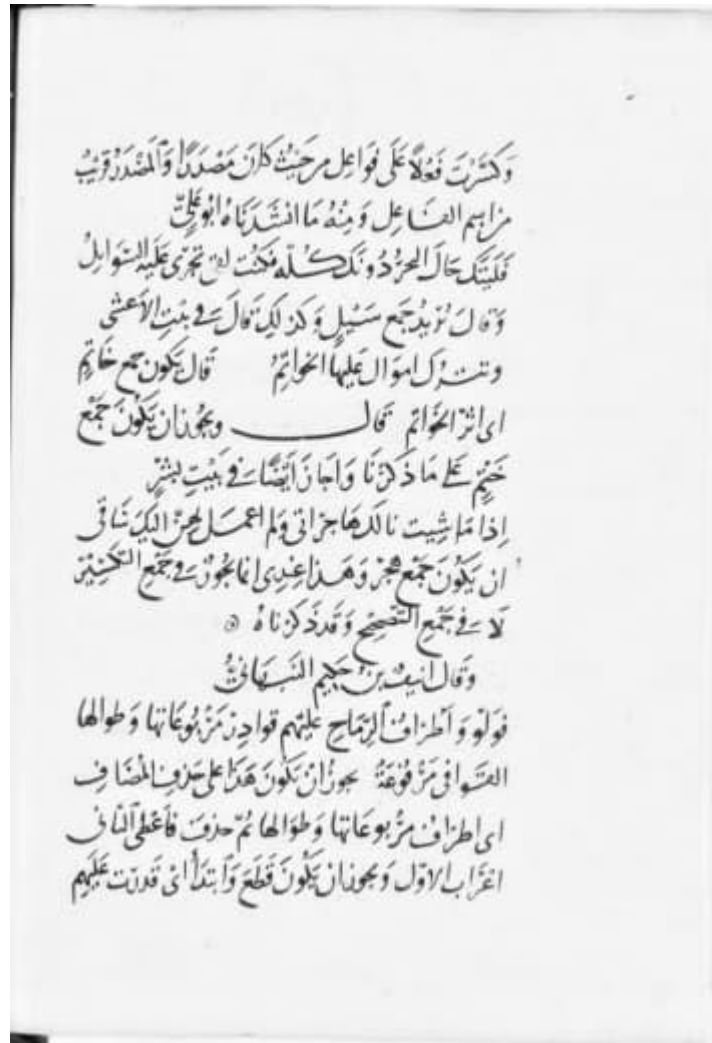 وَكَسَّرْتَ فَعْلًا عَلَى فَوَاعِل مِن حَيْثُ كَانَ مَصْدَرًا وَالْمَصْدَرُ قَرِيبٌ
من اسم الفاعِل وَمِنْهُ مَا انْشَدَنَاهُ ابُو عَلِيٍّ
فَلَيْتَكَ حَالَ البحرُ دُونَكَ كُلُّه وَكُنْتَ لقى تجرى عَلَيْهِ السَّوَايِلُ
وَقَالَ يُرِيدُ جَمع سَيْلٍ وَكَذلِكَ قَالَ فى بَيْتِ الأعشى
وتترك اموال عَلَيْهَا الخواتِمُ قَالَ يَكُون جمع خَاتِمٍ
اى اثَرُ الخَوَاتِمِ قَالـــــ ويجوز ان يَكُونَ جَمْعَ
خَتْمٍ عَلى مَا ذَكَرْنَا وَاجَازَ ايضًا فى بَيْتِ بِشْرٍ
اِذا مَا شِيت نالك هَاجِرَاتى وَلم اعمل بهنَّ اليكَ سَاقى
ان يَكُونَ جَمْعَ هُجْرٍ وَهَذا عِنْدِى انما يَجُوزُ فى جَمْعِ التكْسِيْرِ
لَا فى جَمْعِ التَّصْحِيْحِ وَقَدْ ذَكَرْنَاهُ ۞
وَقَالَ انيفُ بنُ حَكِيمٍ النَّبهَانِيُّ
فَوَلَّوْ وَاَطْرَافُ الرِّمَاحِ عَلَيْهِم قوادِرُ مَرْبُوعَاتها وَطوالها
القَوافى مَرْفُوعَةُ يجوزُ انْ يَكُونَ هَذَا عَلى حَذفِ المُضَافِ
اى اطرافُ مَرْبُوعَاتها وَطِوَالها ثُمَّ حذفَ فَاَعْطى الثانِى
اعْرَابَ الاوَّلِ وَيجوز ان يَكُونَ قَطَعَ وَابْتَدَأ اىْ قَدرَت عَلَيْهِم